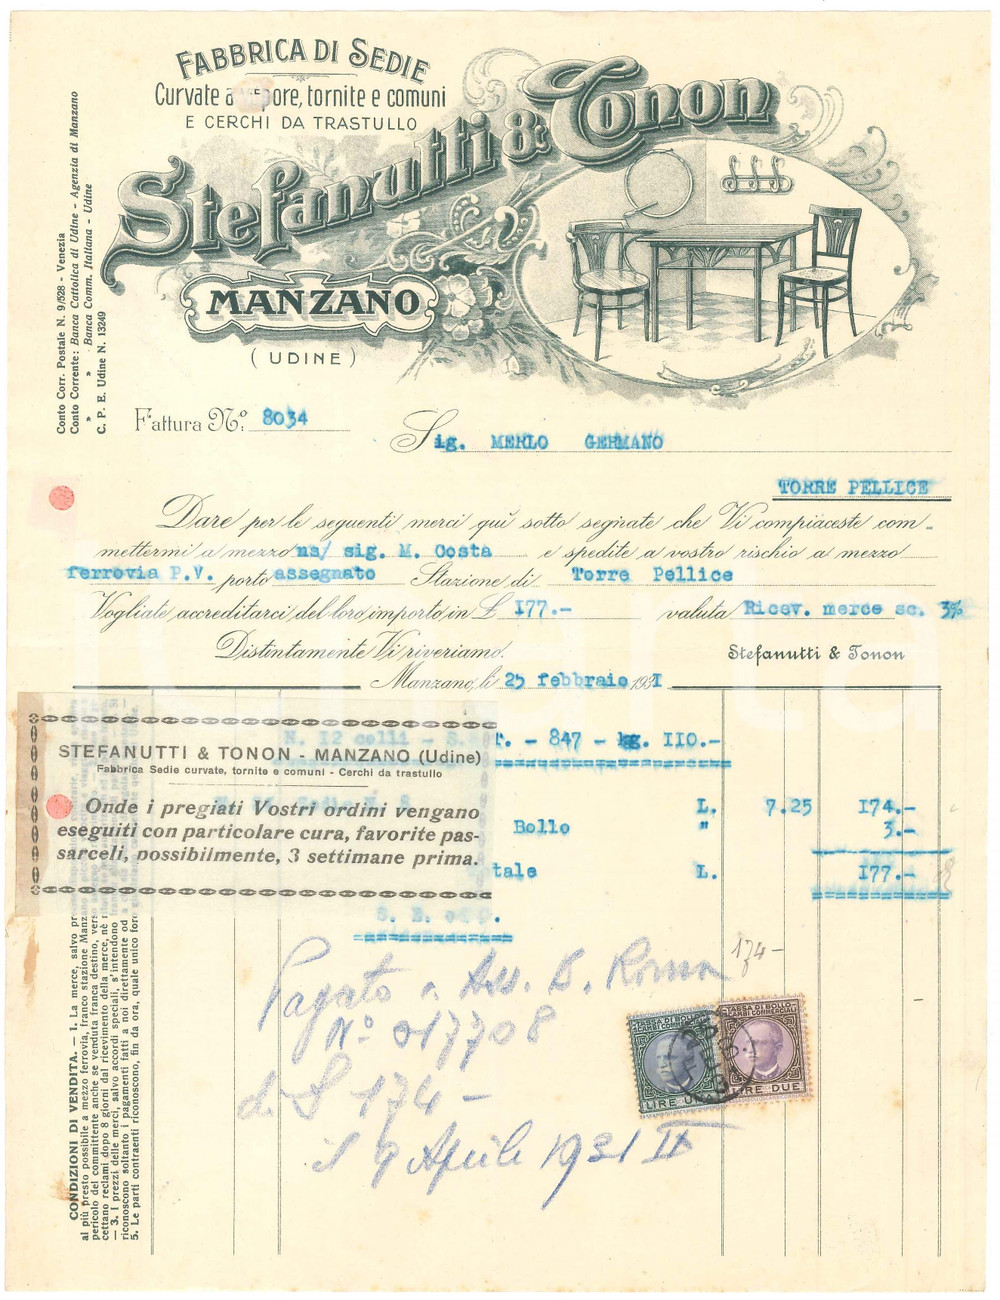 FABBRICA DI SEDIE
Curvate a vapore, tornite e comuni
E CERCHI DA TRASTULLO
Stefanutti & Tonon
MANZANO
( UDINE )
Conto Corr. Postale N. 9/528 - Venezia
Conto Corrente: Banca Cattolica di Udine - Agenzia di Manzano
» » Banca Comm. Italiana - Udine
C. P. E. Udine N. 13249
Fattura N.° 8034
Sig. MERLO GERMANO
TORRE PELLICE
Dare per le seguenti merci quì sotto segnate che Vi compiaceste com-
mettermi a mezzo ns/ sig. M. Costa e spedite a vostro rischio a mezzo
ferrovia P.V. porto assegnato Stazione di Torre Pellice
Vogliate accreditarci del loro importo in £ 177.- valuta Ricev. merce sc. 3%
Distintamente Vi riveriamo.
Stefanutti & Tonon
Manzano, li 25 febbraio 1931
N. 12 colli - S. T. - 847 - kg. 110.-
STEFANUTTI & TONON - MANZANO (Udine)
Fabbrica Sedie curvate, tornite e comuni - Cerchi da trastullo
Onde i pregiati Vostri ordini vengano
eseguiti con particolare cura, favorite pas-
sarceli, possibilmente, 3 settimane prima.
L. 7.25 174.-
Bollo " 3.-
tale L. 177.-
S. E. O.
174-
Pagato a Ass. B. Roma
N° 017708
di £ 174 -
il 9 Aprile 1931 IX
TASSA DI BOLLO
SCAMBI COMMERCIALI
LIRE UNA
TASSA DI BOLLO
SCAMBI COMMERCIALI
LIRE DUE
CONDIZIONI DI VENDITA. — 1. La merce, salvo
al più presto possibile a mezzo ferrovia, franco stazione Manzano
pericolo del committente anche se venduta franca destino, verso
cettano reclami dopo 8 giorni dal ricevimento della merce, nè
— 3. I prezzi delle merci, salvo accordi speciali, s'intendono
riconoscono soltanto i pagamenti fatti a noi direttamente od
5. Le parti contraenti riconoscono, fin da ora, quale unico foro